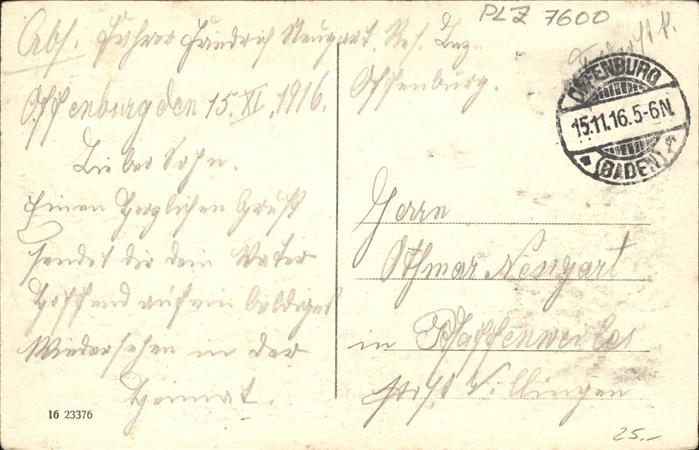 PLZ 7600
Abs. Fahrer Friedrich Neugart, Res. Laz.
Offenburg.
Feldpost
OFFENBURG
15.11.16.5-6N.
* (BADEN) *
Offenburg den 15. XI. 1916.
Lieber Sohn.
Einen Herzlichen Gruß
sendet dir dein Vater
Hoffend auf ein baldiges
Wiedersehen in der
Heimat.
Herrn
Othmar Neugart
in Pfaffenweiler
Post Villingen
16 23376
25.-